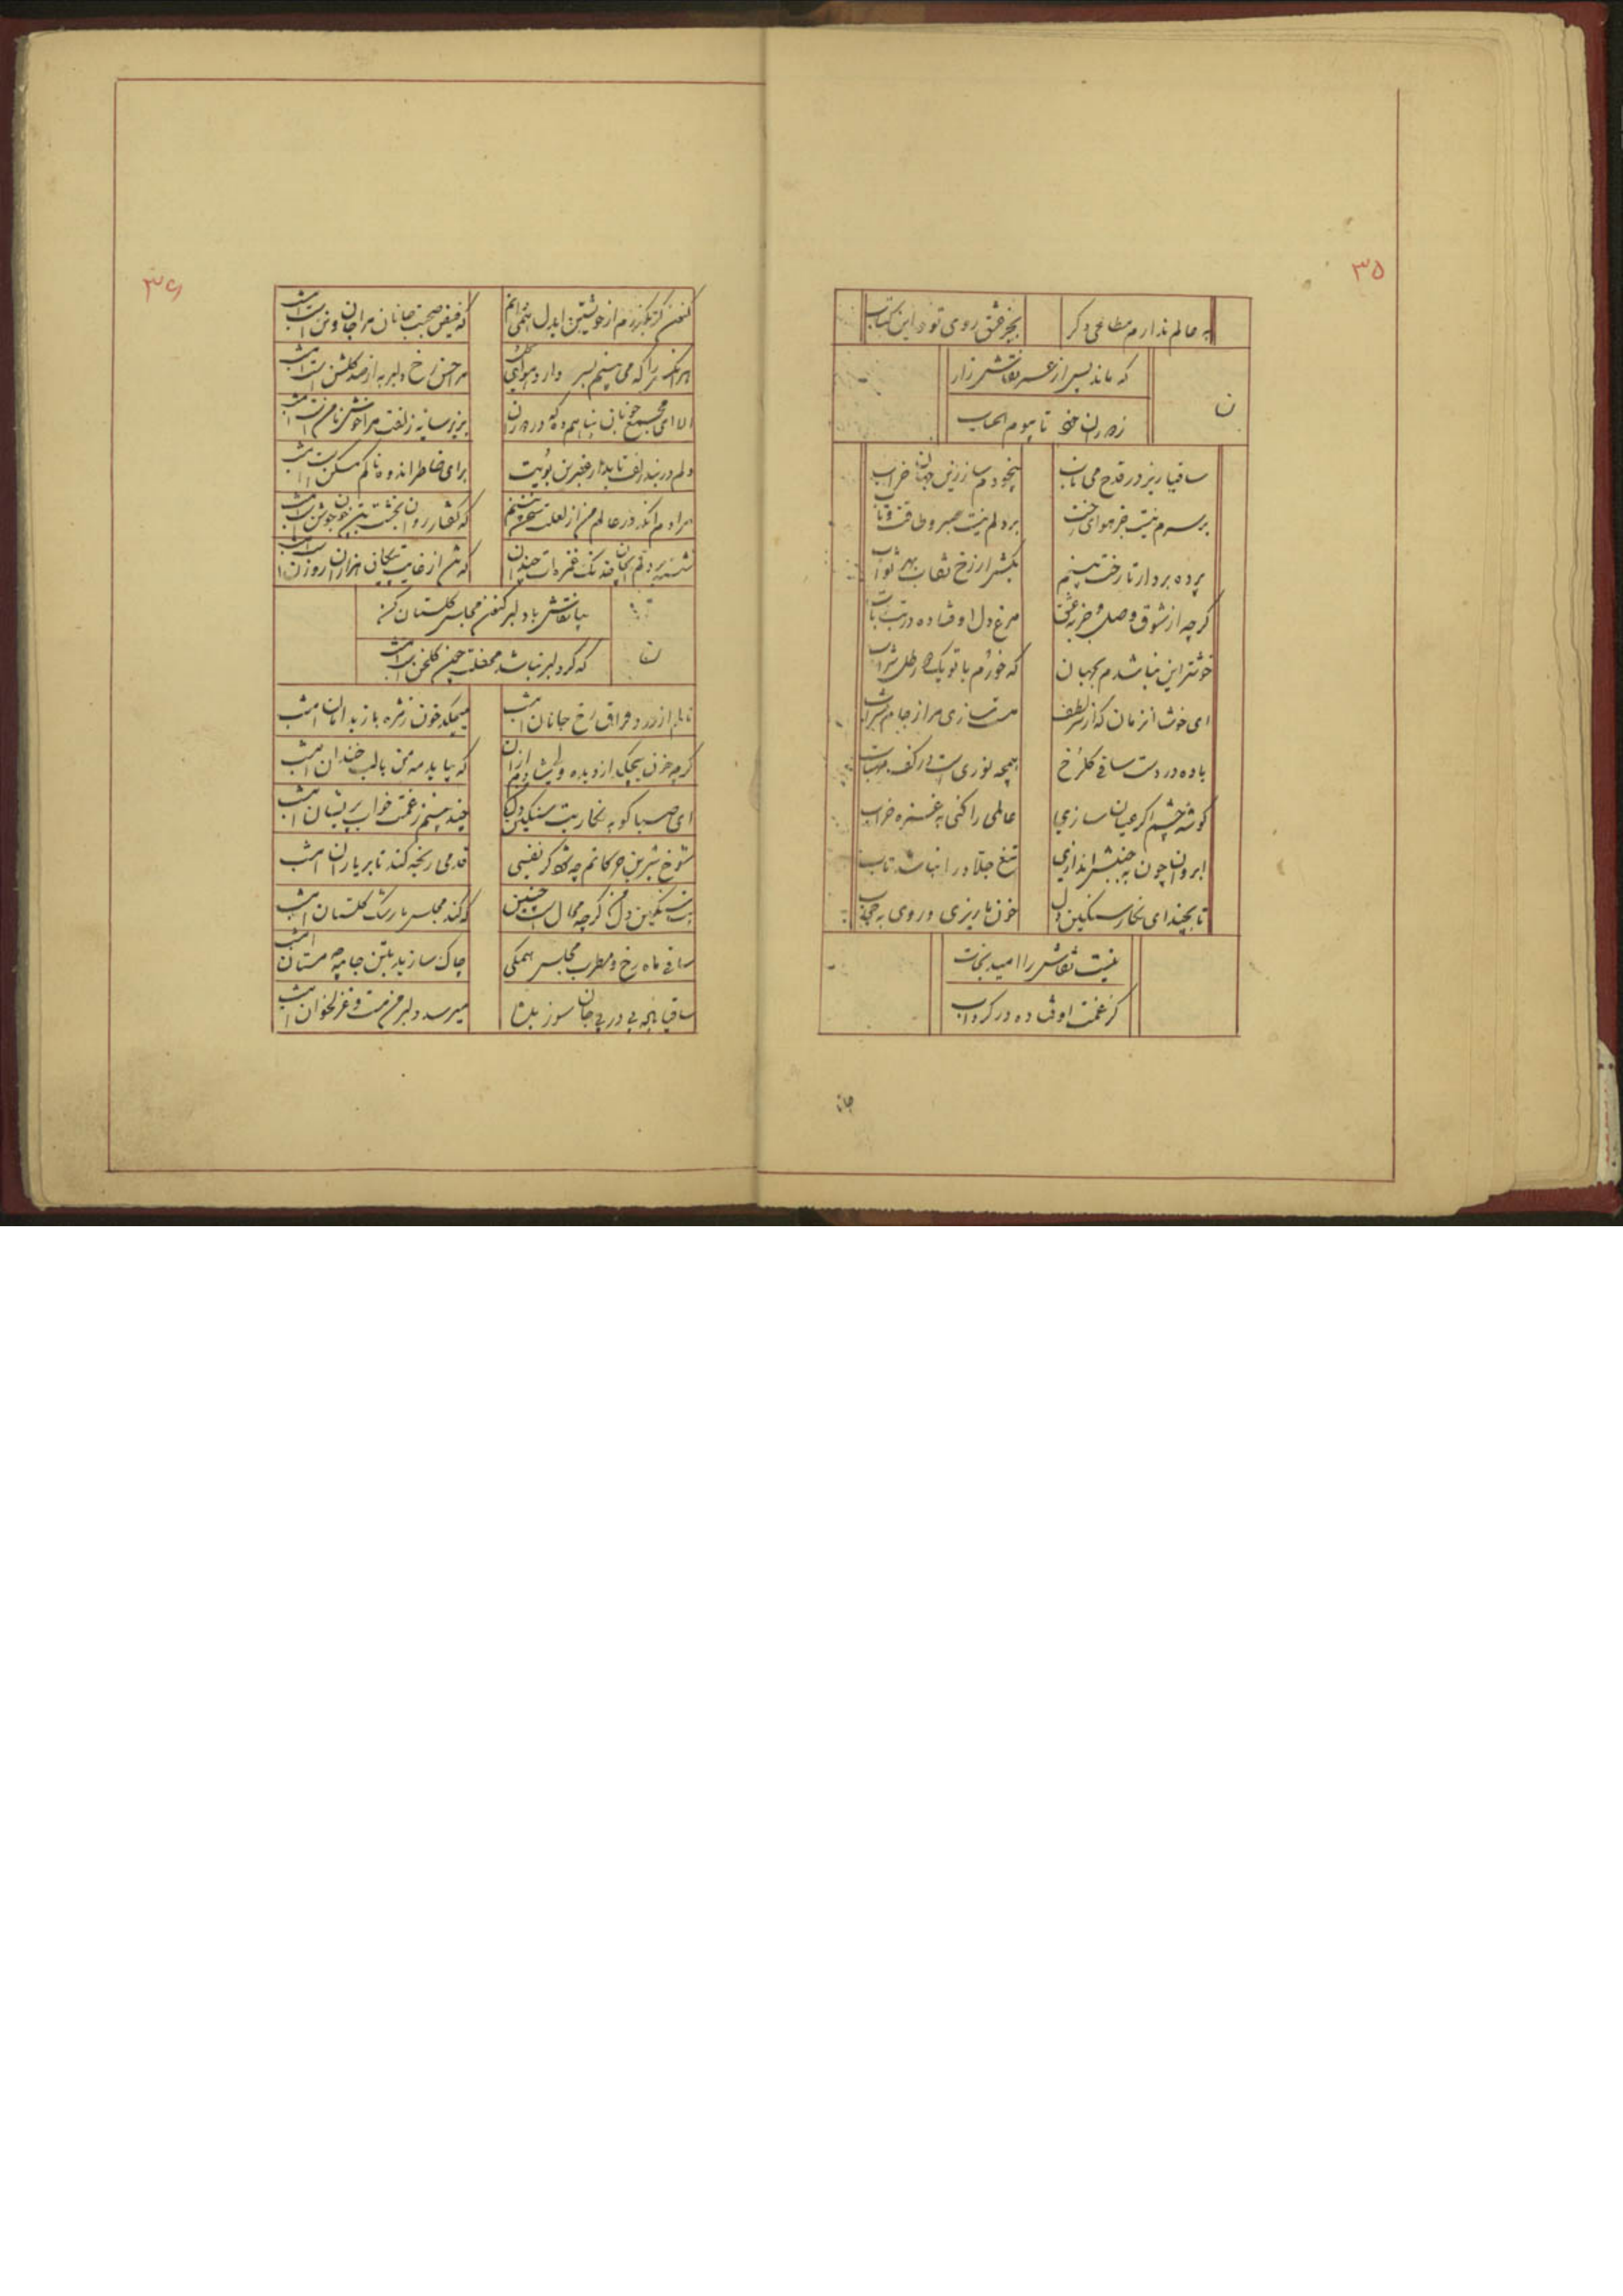 ۳۵
به عالم ندارم مطاعی دگر
بجز عشق روی تو و این کتاب
که ماند پس از عسر نقاش زار
ن
تا یوم الحساب
ساقیا ریز در قدح می ناب
بیخودم ساز زین جهان خراب
بر سرم نیست جز هوای رخت
بر دلم نیست صبر و طاقت و تاب
پرده بردار تا رخت بینم
بکش از رخ نقاب بهر ثواب
گرچه از شوق وصل و
مرغ دل اوفتاده در تب تاب
خوشتر این نباشدم بجهان
که خورم با تو یک دو رطل شراب
ای خوش آنزمان که از سر لطف
مست سازی مرا ز جام شراب
باده در دست ساقی گلرخ
همچه نوری است در کف مهتاب
گوشه چشم اگر عیان سازی
عالمی را کنی به غمزه خراب
ابروان چون به جنبش اندازی
تیغ جلاد را نباشد تاب
تا بچند ای نگار سنگین دل
خون ما ریزی و روی به حجاب
نیست نقاش را امید نجات
کز غمت اوفتاده در گرداب
۳۶
کنون گر بگذرم از خویشتن ایدل
که فیض صحبت جانان مرا جان و تن است امشب
که می بینم بسر دارد هوای
مرا حسن رخ دلبر به از صد گلشن است امشب
الا ای مجمع خوبان
بزیر سایه زلفت مرا خوش مامن است امشب
دلم در بند زلف تابدار عنبرین بویت
برای خاطر اندوه ناکم مسکن است امشب
مرادم آنکه در عالم من از لعلت سخن بینم
که گفتار روان بخشت بتن چون جوشن است امشب
بیا نقاش با دلبر کنون مجلس گلستان کن
ن
که گر دلبر نباشد محفلت چون گلخن است امشب
نالم از درد فراق رخ جانان امشب
میچکد خون ز مژه باز بدامان امشب
گرچه خون میچکد از دیده ولی شادم از آن
که بیاید مه من با لب خندان امشب
ای صبا گو به نگار بت سنگین دل ما
چند بینم ز غمت خواب پریشان امشب
شوخ شیرین حرکاتم چه شود گر نفسی
قدمی رنجه کند تا بر یاران امشب
بت سنگین دل من گرچه محال است چنین
که کند مجلس ما رشک گلستان امشب
ساقی ماه رخ و مطرب مجلس همگی
چاک سازید بتن جامه چه مستان امشب
ساقیا باده پی در پی جان سوز بده
میرسد دلبر من مست و غزلخوان امشب